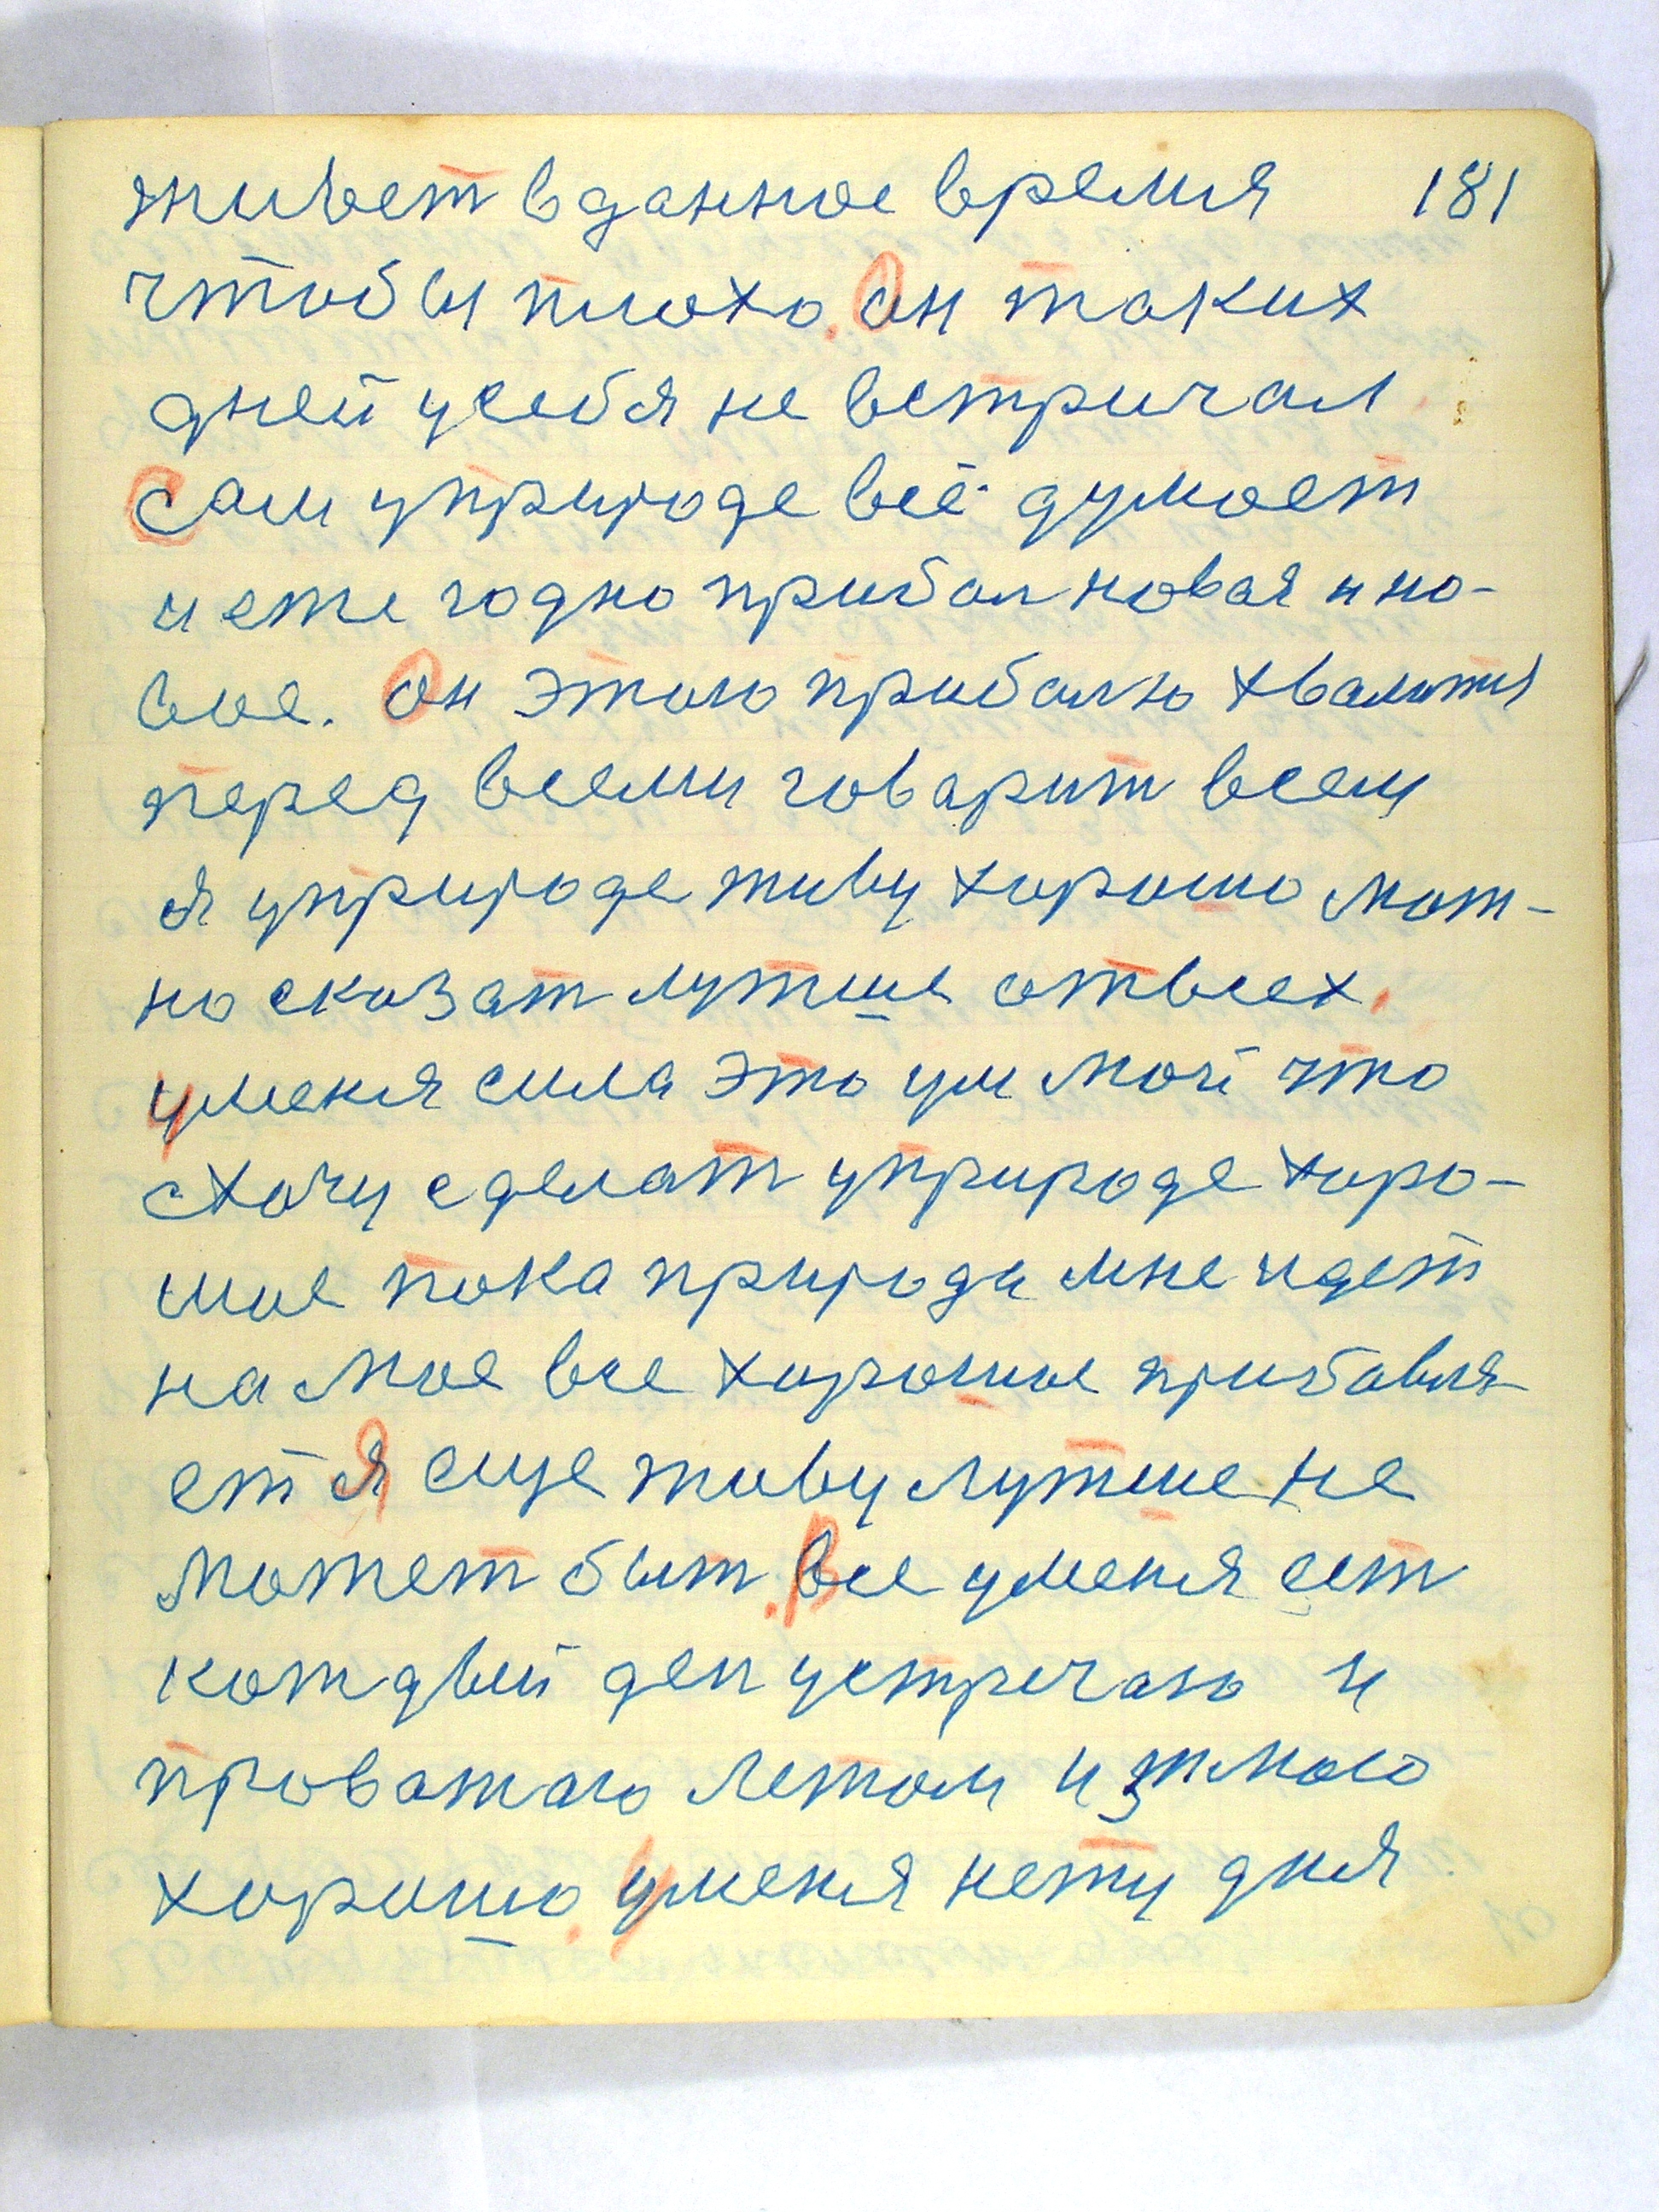 живет в данное время 181
чтобы плохо. Он таких
дней усебя не встричал
Сам уприроде всё думает
и еже годно прибал новая и но-
вое. Он этою прибалю хвалится
перед всеми говарит всем
я уприроде живу хорошо мож-
но сказат лутше отвсех.
уменя сила это ум мой что
схочу сделат уприроде хоро-
шое пока природа мне идет
на мое все хорошое прибавля
ет Я еще живу лутше не
может быт. Все уменя ест
каждый ден устречаю и
проважаю летом и змою
хорошо. Уменя нету дня